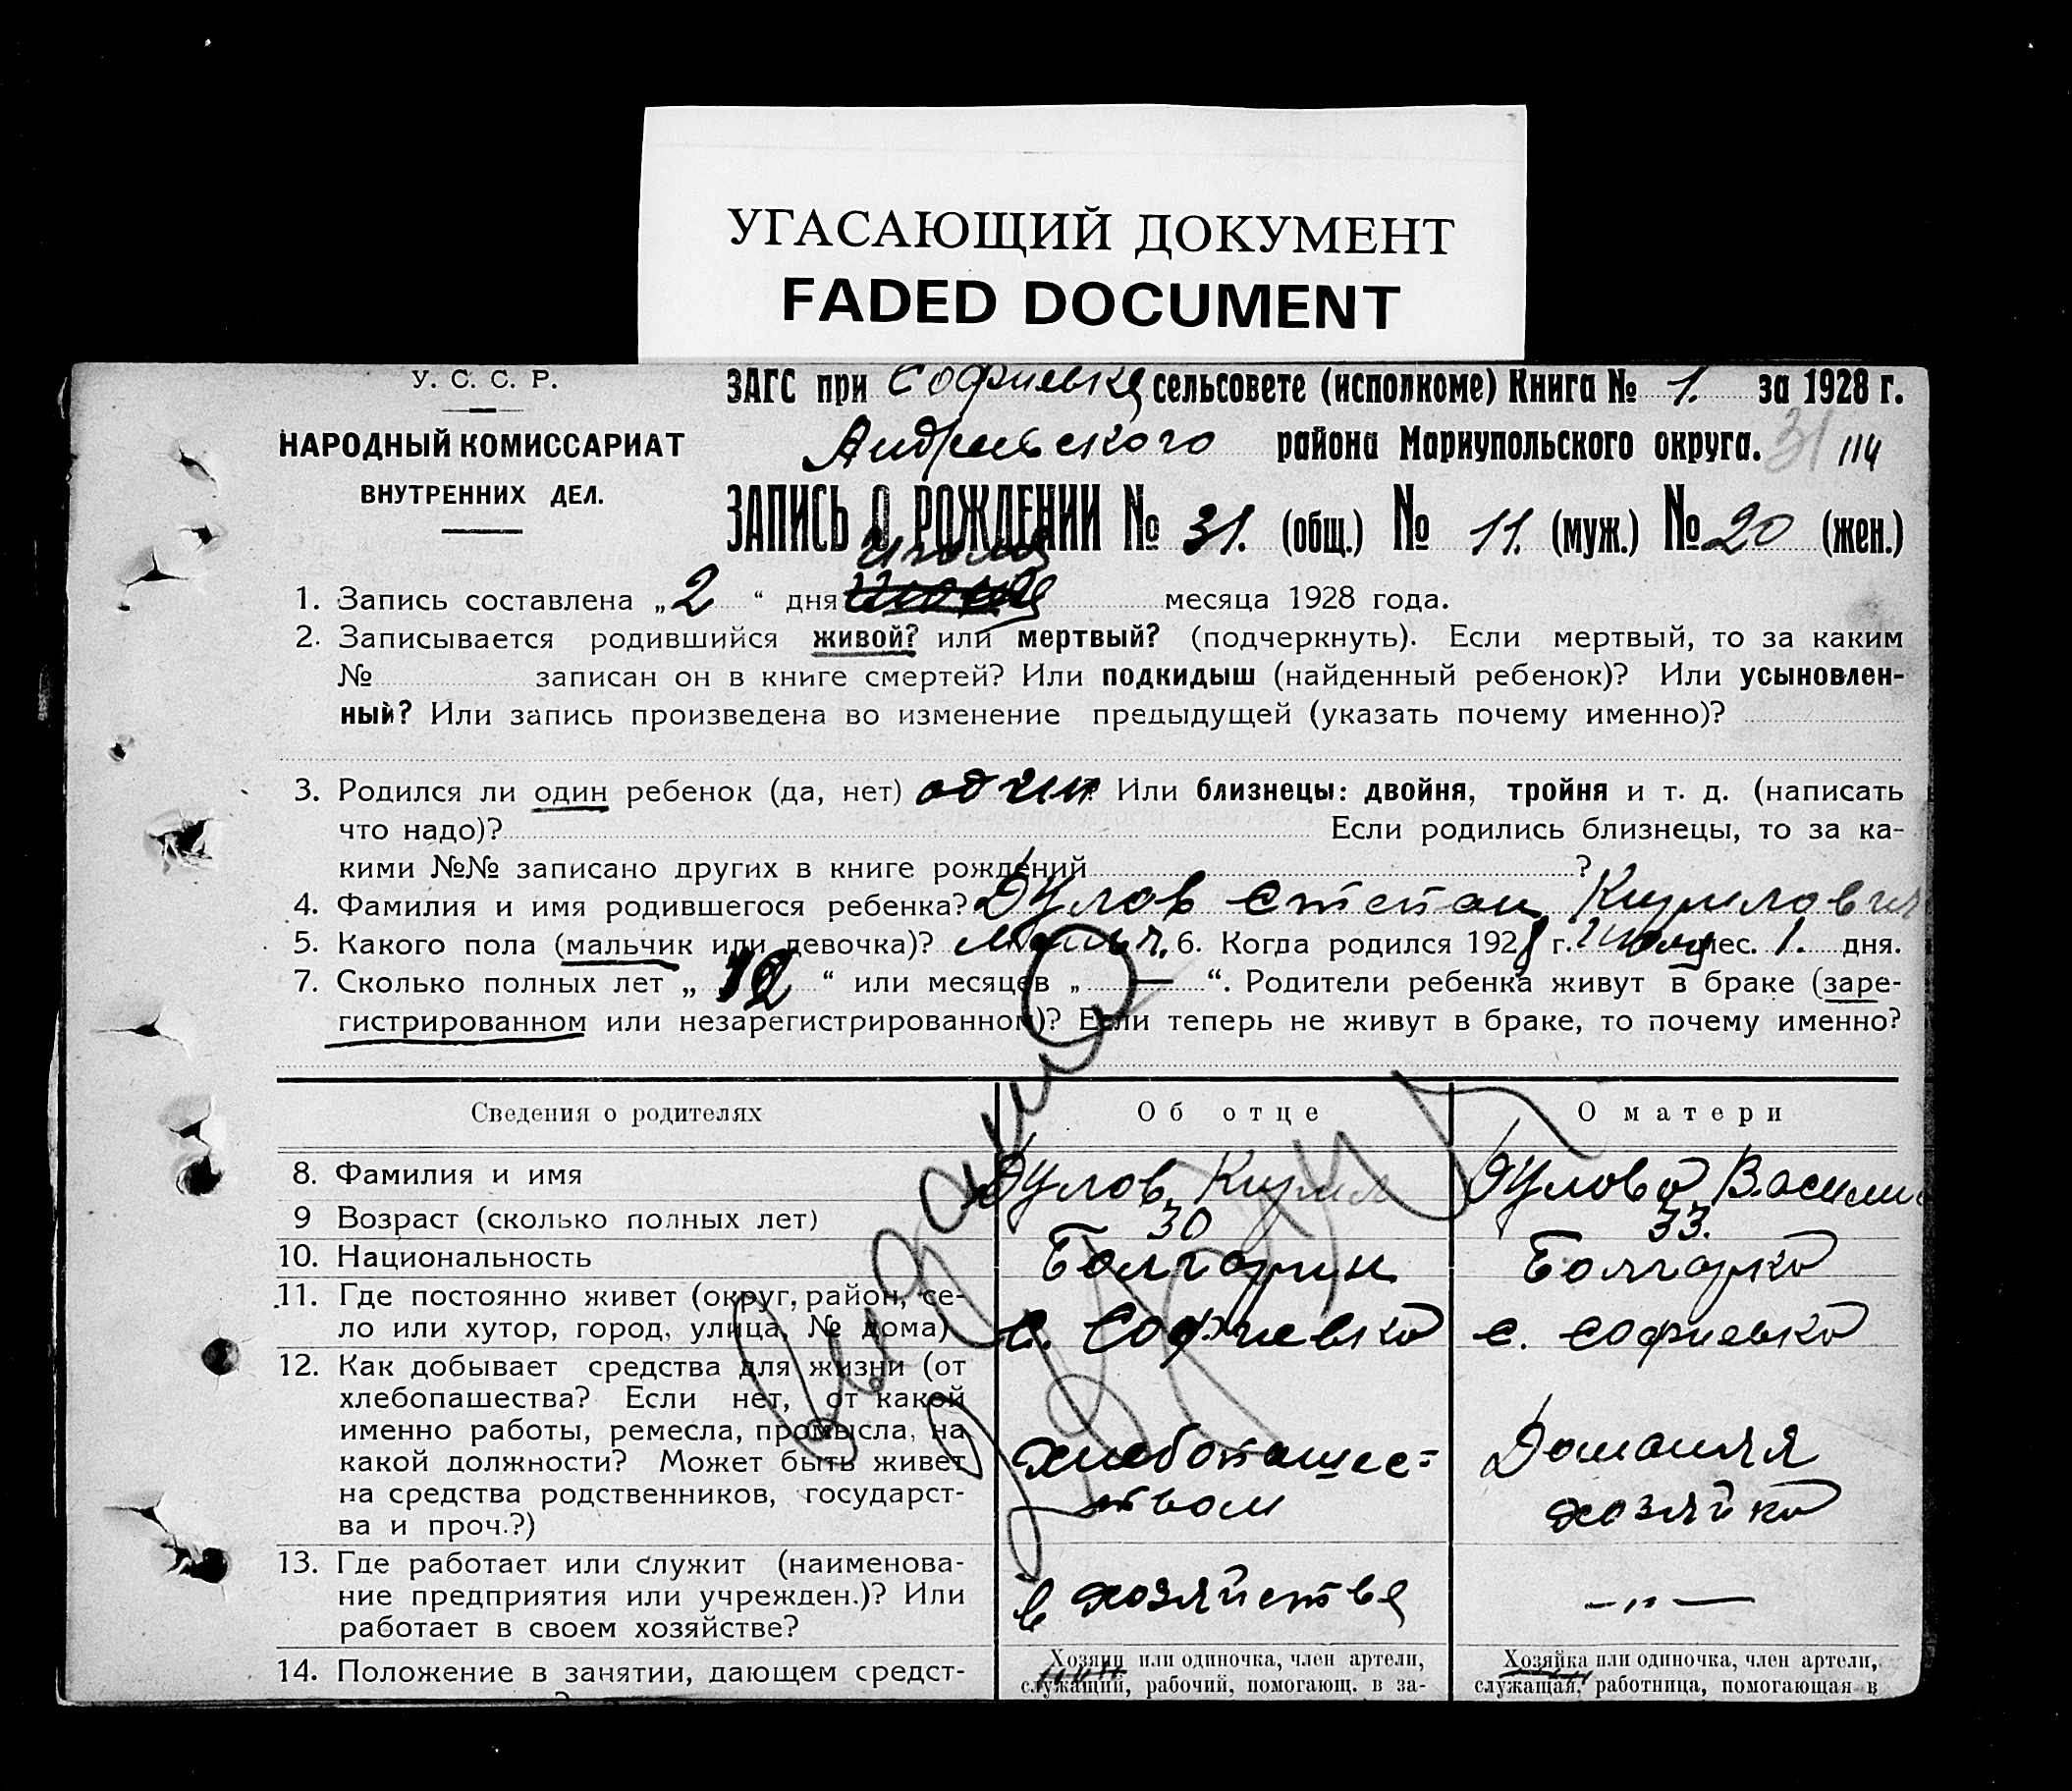 УГАСАЮЩИЙ ДОКУМЕНТ
FADED DOCUMENT
У. С. С. Р.
НАРОДНЫЙ КОМИССАРИАТ
ВНУТРЕННИХ ДЕЛ.
ЗАГС при Софиевке сельсовете (исполкоме) Книга № 1. за 1928 г.
Андреевского района Мариупольского округа. 31 114
ЗАПИСЬ О РОЖДЕНИИ № 31. (общ.) № 11. (муж.) № 20 (жен.)
июля
1. Запись составлена „2“ дня месяца 1928 года.
2. Записывается родившийся живой? или мертвый? (подчеркнуть). Если мертвый, то за каким
№ записан он в книге смертей? Или подкидыш (найденный ребенок)? Или усыновлен-
ный? Или запись произведена во изменение предыдущей (указать почему именно)?
3. Родился ли один ребенок (да, нет) один Или близнецы: двойня, тройня и т. д. (написать
что надо)? Если родились близнецы, то за ка-
кими №№ записано других в книге рождений ?
4. Фамилия и имя родившегося ребенка? Дулов Степан Кирилович
5. Какого пола (мальчик или девочка)? Мальч. 6. Когда родился 1928 г. Июля мес. 1. дня.
7. Сколько полных лет „12“ или месяцев „—“. Родители ребенка живут в браке (заре-
гистрированном или незарегистрированном)? Если теперь не живут в браке, то почему именно?
Сведения о родителях Об отце О матери
8. Фамилия и имя Дулов Кирил Дулова Васили
9 Возраст (сколько полных лет) 30 33.
10. Национальность Болгарин Болгарка
11. Где постоянно живет (округ, район, се-
ло или хутор, город, улица, № дома) с. Софиевка с. Софиевка
12. Как добывает средства для жизни (от
хлебопашества? Если нет, от какой
именно работы, ремесла, промысла, на
какой должности? Может быть живет
на средства родственников, государст-
ва и проч.?)
хлебопашес-
твом
Домашняя
хозяйка
13. Где работает или служит (наименова-
ние предприятия или учрежден.)? Или
работает в своем хозяйстве?
в хозяйстве —„—
14. Положение в занятии, дающем средст-
Хозяин или одиночка, член артели,
служащий, рабочий, помогающ. в за-
Хозяйка или одиночка, член артели,
служащая, работница, помогающая в